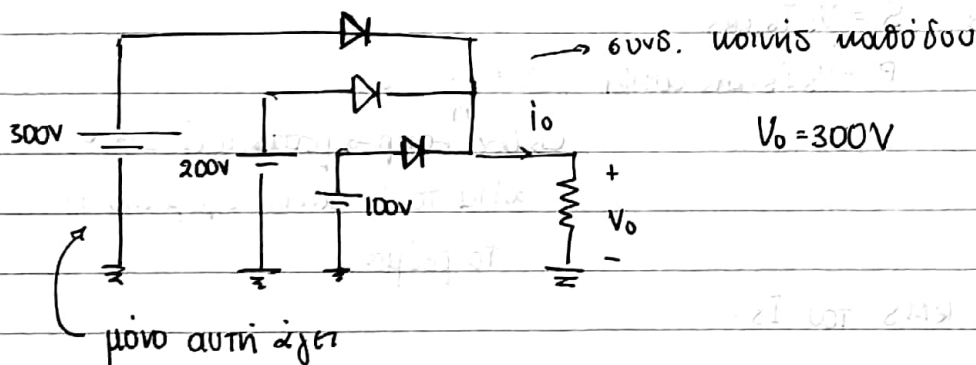 → συνδ. κοινής καθόδου
300V
200V
100V
i₀
V₀ = 300V
+
V₀
-
μόνο αυτή άγει
RMS του Is